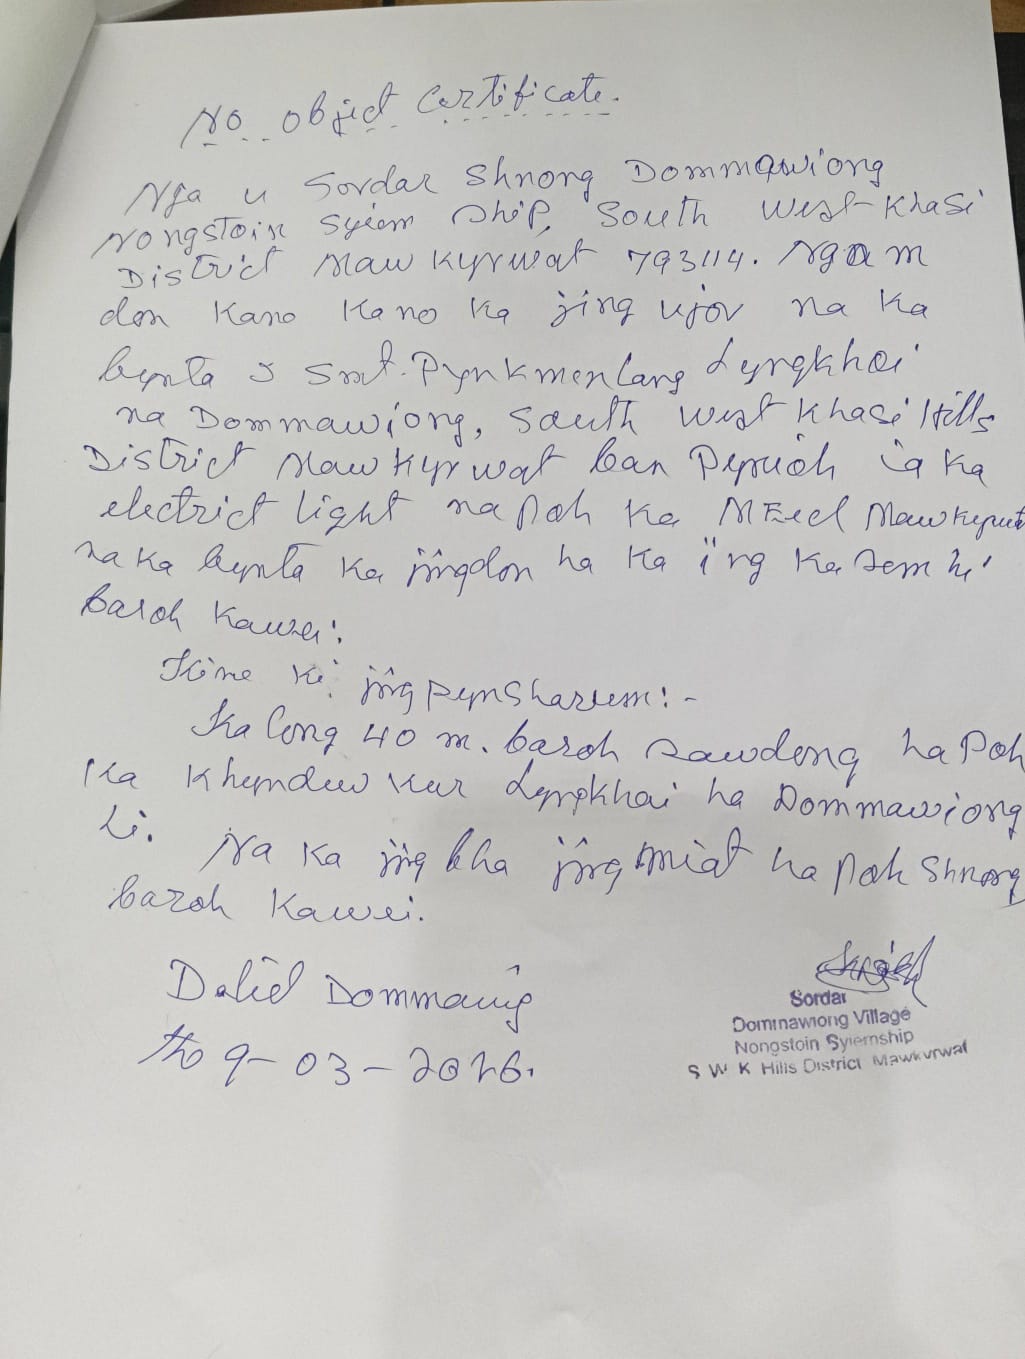 No object Certificate.
Nga u Sordar Shnong Dommawiong
Nongstoin Syiem Ship, South West Khasi
District Mawkyrwat 793114. Ngam
don kano kano ka jing ujor na ka
bynta I Smt. Pynkmenlang Lyngkhoi
na Dommawiong, South West Khasi Hills
District Mawkyrwat ban Pynioh ia ka
electrict light na poh ka MEecl
na ka bynta ka jingdon ha ka ïing ka sem hi
baroh kawei.
Kine ki jing pynsharum:-
Ka long 40 m. baroh sawdong ha Poh
ka Khyndew kur Lyngkhai ha Dommawiong
hi.
Na ka jing bha jing miat ha poh Shnong
baroh kawei.
Dated Dommawig
tho 9-03-2026.
Sordar
Dommawiong Village
Nongstoin Syiemship
S W K Hills District Mawkyrwat